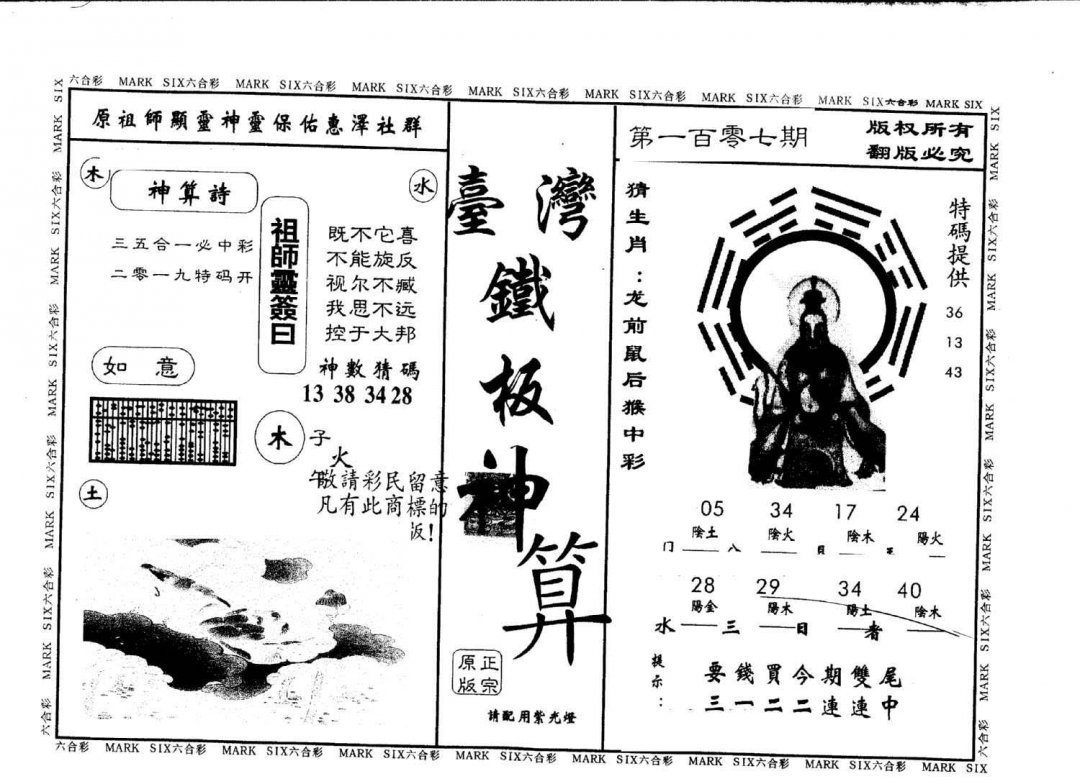 六合彩 MARK SIX六合彩 MARK SIX六合彩 MARK SIX六合彩 MARK SIX六合彩 MARK SIX六合彩 MARK SIX六合彩 MARK SIX六合彩 MARK SIX
原祖師顯靈神靈保佑惠澤社群
木
神算詩
水
三五合一必中彩
二零一九特码开
祖師靈簽曰
既不它喜
不能旋反
视尔不臧
我思不远
控于大邦
神數猜碼
13 38 34 28
如意
木
子
火
午
敬請彩民留意
凡有此商標的
版!
土
臺灣
鐵
板
神
算
正宗
原版
請配用紫光燈
第一百零七期
版权所有
翻版必究
猜生肖：龙前鼠后猴中彩
特碼提供
36
13
43
05 34 17 24
陰土 陰火 陰木 陽火
门 八
28 29 34 40
陽金 陽木 陽土 陰木
水 三 日 者
提示：
要錢買今期雙尾
三一二二連連中
六合彩 MARK SIX六合彩 MARK SIX六合彩 MARK SIX六合彩 MARK SIX六合彩 MARK SIX六合彩 MARK SIX六合彩 MARK SIX六合彩 MARK SIX